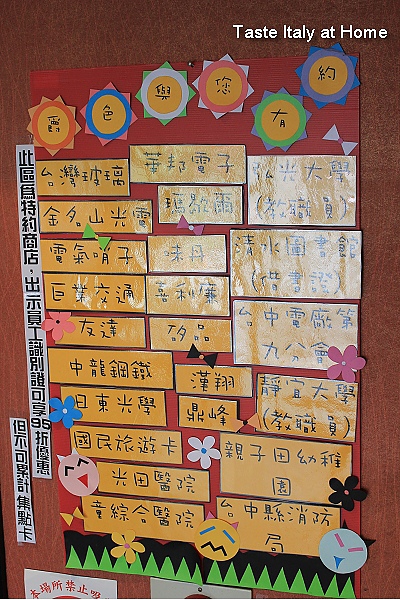 Taste Italy at Home
爵色與您有約
此區為特約商店,出示員工識別證可享95折優惠
但不可累計集點卡
台灣玻璃
金名山光電
電氣哨子
巨業交通
友達
中龍鋼鐵
日東光學
國民旅遊卡
光田醫院
童綜合醫院
華邦電子
瑪歇爾
味丹
喜利廉
矽品
漢翔
鼎峰
弘光大學
(教職員)
清水圖書館
(借書證)
台中電廠第
九分會
靜宜大學
(教職員)
親子田幼稚
園
台中縣消防
局
本場所禁止吸